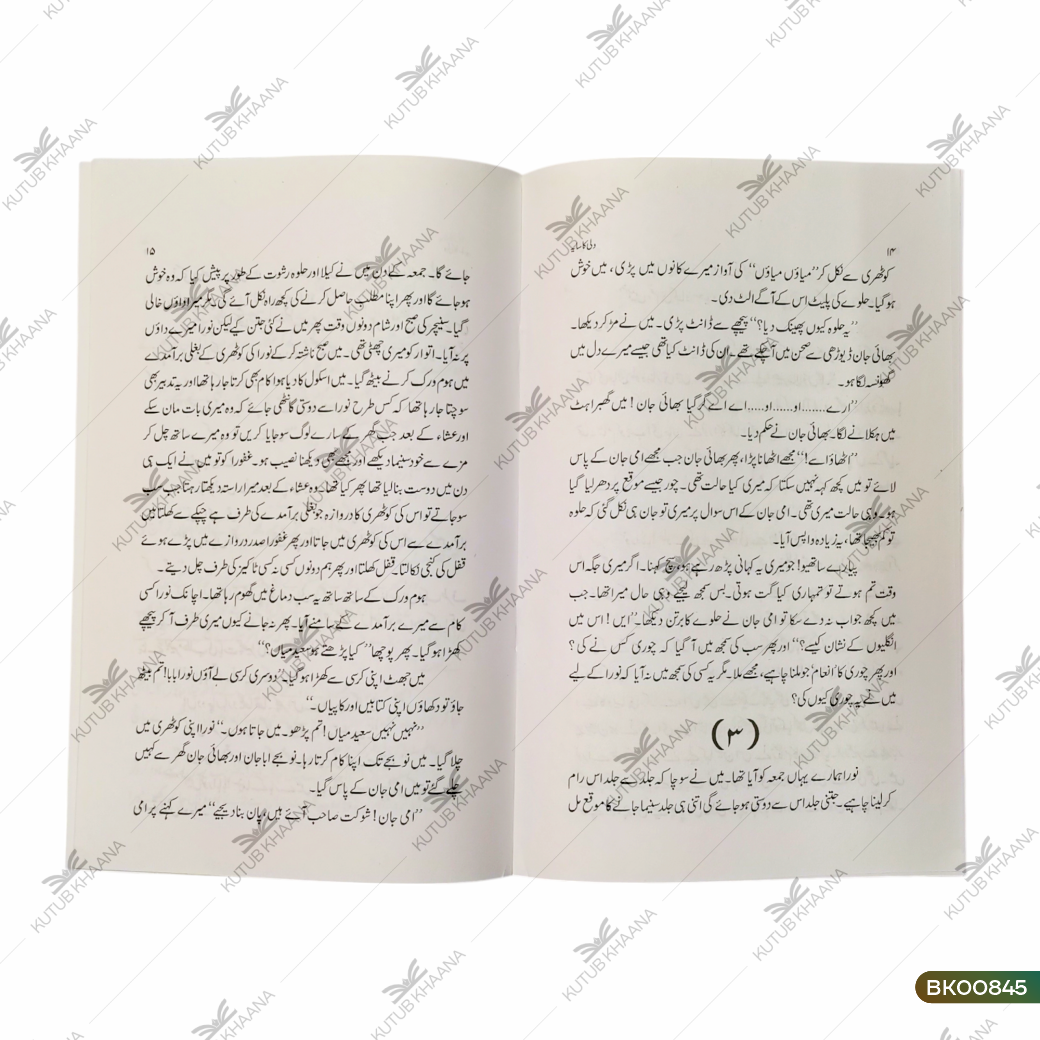 ۱۴
دلی کا سانپ
کوٹھری سے نکل کر ’’میاؤں میاؤں‘‘ کی آواز میرے کانوں میں پڑی، میں خوش
ہو گیا۔ حلوے کی پلیٹ اس کے آگے الٹ دی۔
’’یہ حلوہ کیوں پھینک دیا؟‘‘ پیچھے سے ڈانٹ پڑی۔ میں نے مڑ کر دیکھا۔
بھائی جان ڈیوڑھی سے صحن میں آ چکے تھے۔ ان کی ڈانٹ کیا تھی جیسے میرے دل میں
گھونسہ لگا ہو۔
’’ارے.......او......او.....اے اے گر گیا بھائی جان! میں گھبراہٹ
میں ہکلانے لگا۔ بھائی جان نے حکم دیا۔
’’اٹھاؤ اسے!‘‘ مجھے اٹھانا پڑا، پھر بھائی جان جب مجھے امی جان کے پاس
لائے تو میں کچھ کہہ نہیں سکتا کہ میری کیا حالت تھی۔ چور جیسے موقع پر دھر لیا گیا
ہو۔ وہی حالت میری تھی۔ امی جان کے اس سوال پر میری تو جان ہی نکل گئی کہ حلوہ
تو کم بھیجا تھا، یہ زیادہ واپس آیا۔
پیارے ساتھیو! جو میری یہ کہانی پڑھ رہے ہو، سچ کہنا۔ اگر میری جگہ اس
وقت تم ہوتے تو تمہاری کیا گت ہوتی۔ بس سمجھ لیجیے وہی حال میرا تھا۔ جب
میں کچھ جواب نہ دے سکا تو امی جان نے حلوے کا برتن دیکھا۔ ’’ایں! اس میں
انگلیوں کے نشان کیسے؟‘‘ اور پھر سب کی سمجھ میں آ گیا کہ چوری کس نے کی؟
اور پھر چوری کا ’انعام‘ جو ملنا چاہیے، مجھے ملا۔ مگر یہ کسی کی سمجھ میں نہ آیا کہ نورا کے لیے
میں نے یہ چوری کیوں کی؟
(۳)
نورا ہمارے یہاں جمعہ کو آیا تھا۔ میں نے سوچا کہ جلد سے جلد اس رام
کر لینا چاہیے۔ جتنی جلد اس سے دوستی ہو جائے گی اتنی ہی جلد سنیما جانے کا موقع مل
۱۵
جائے گا۔ جمعہ کے دن میں نے کیلا اور حلوہ رشوت کے طور پر پیش کیا کہ وہ خوش
ہو جائے گا اور پھر اپنا مطلب حاصل کرنے کی کچھ راہ نکل آئے گی مگر میرا داؤں خالی
گیا۔ سنیچر کی صبح اور شام دونوں وقت پھر میں نے کئی جتن کیے لیکن نورا میرے داؤں
پر نہ آیا۔ اتوار کو میری چھٹی تھی۔ میں صبح ناشتہ کر کے نورا کی کوٹھری کے بغلی برآمدے
میں ہوم ورک کرنے بیٹھ گیا۔ میں اسکول کا دیا ہوا کام بھی کرتا جا رہا تھا اور یہ تدبیر بھی
سوچتا جا رہا تھا کہ کس طرح نورا سے دوستی گانٹھی جائے کہ وہ میری بات مان سکے
اور عشاء کے بعد جب گھر کے سارے لوگ سو جایا کریں تو وہ میرے ساتھ چل کر
مزے سے خود سنیما دیکھے اور مجھے بھی دیکھنا نصیب ہو۔ غفورا کو تو میں نے ایک ہی
دن میں دوست بنا لیا تھا پھر کیا تھا، وہ عشاء کے بعد میرا راستہ دیکھتا رہتا جب سب
سو جاتے تو اس کی کوٹھری کا دروازہ جو بغلی برآمدے کی طرف ہے چپکے سے کھلتا میں
برآمدے سے اس کی کوٹھری میں جاتا اور پھر غفورا صدر دروازے میں پڑے ہوئے
قفل کی کنجی نکالتا۔ قفل کھلتا اور پھر ہم دونوں کسی نہ کسی ٹاکیز کی طرف چل دیتے۔
ہوم ورک کے ساتھ ساتھ یہ سب دماغ میں گھوم رہا تھا۔ اچانک نورا کسی
کام سے میرے برآمدے کے سامنے آیا۔ پھر نہ جانے کیوں میری طرف آ کر پیچھے
کھڑا ہو گیا۔ پھر پوچھا ’’کیا پڑھتے ہو سعید میاں؟‘‘
میں جھٹ اپنی کرسی سے کھڑا ہو گیا۔ ’’دوسری کرسی لے آؤں نورا بابا! تم بیٹھ
جاؤ تو دکھاؤں اپنی کتابیں اور کاپیاں۔‘‘
’’نہیں نہیں سعید میاں! تم پڑھو۔ میں جاتا ہوں۔‘‘ نورا اپنی کوٹھری میں
چلا گیا۔ میں نو بجے تک اپنا کام کرتا رہا۔ نو بجے ابا جان اور بھائی جان گھر سے کہیں
چلے گئے تو میں امی جان کے پاس گیا۔
’’امی جان! شوکت صاحب آئے ہیں، پان بنا دیجیے‘‘ میرے کہنے پر امی
KUTUB KHAANA
BK00845